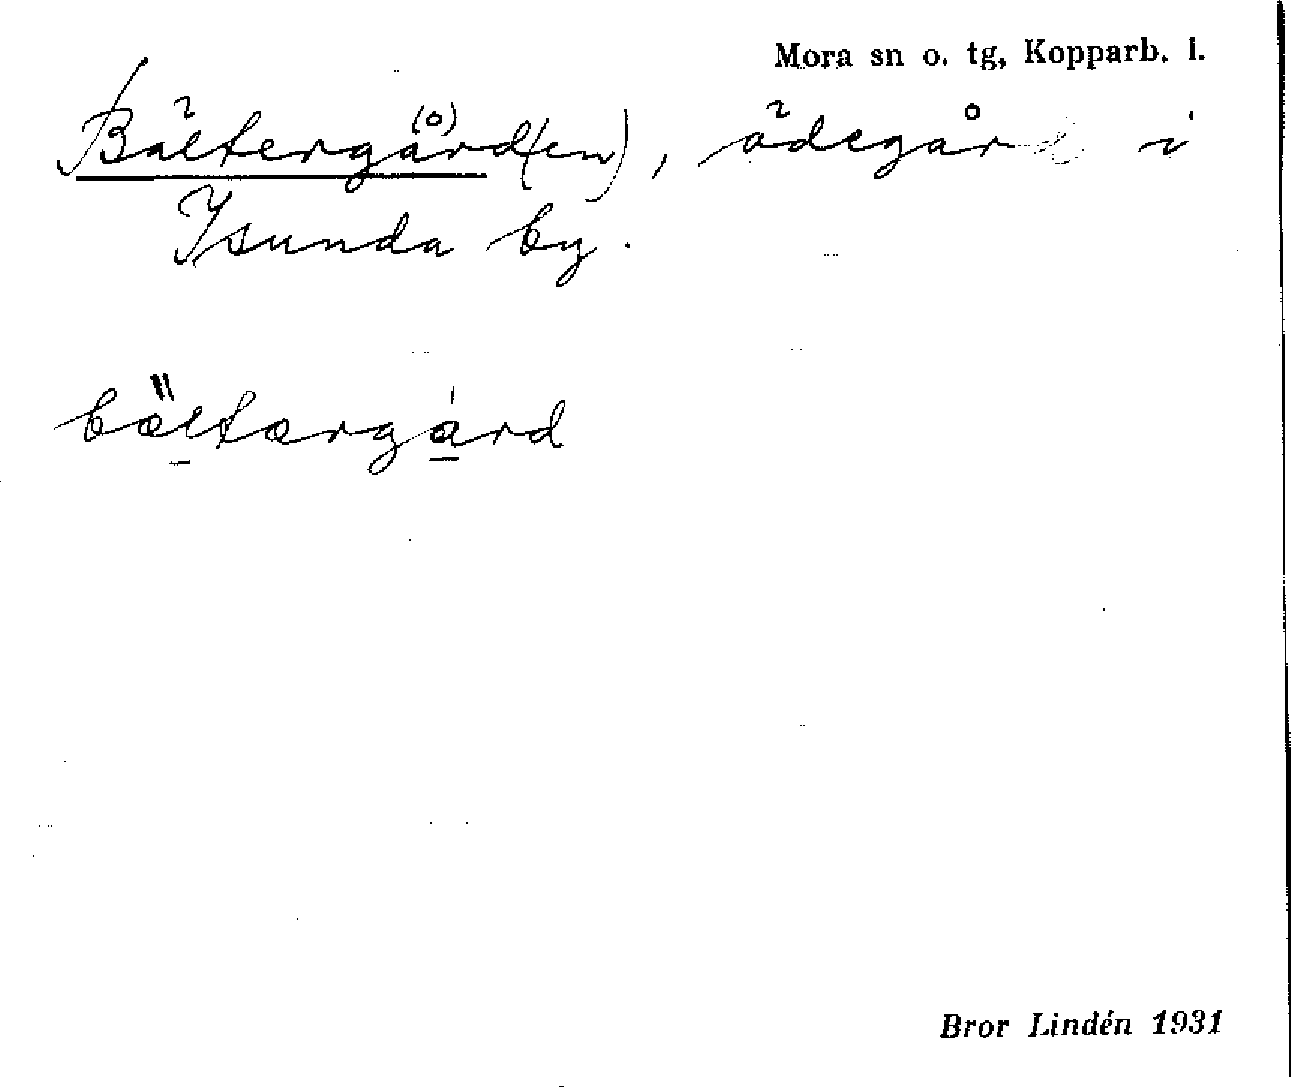 Mora sn o. tg, Kopparb. l.
Bältergå(o)rd(en), ödegård i
Isunda by.
bältærgård
Bror Lindén 1931